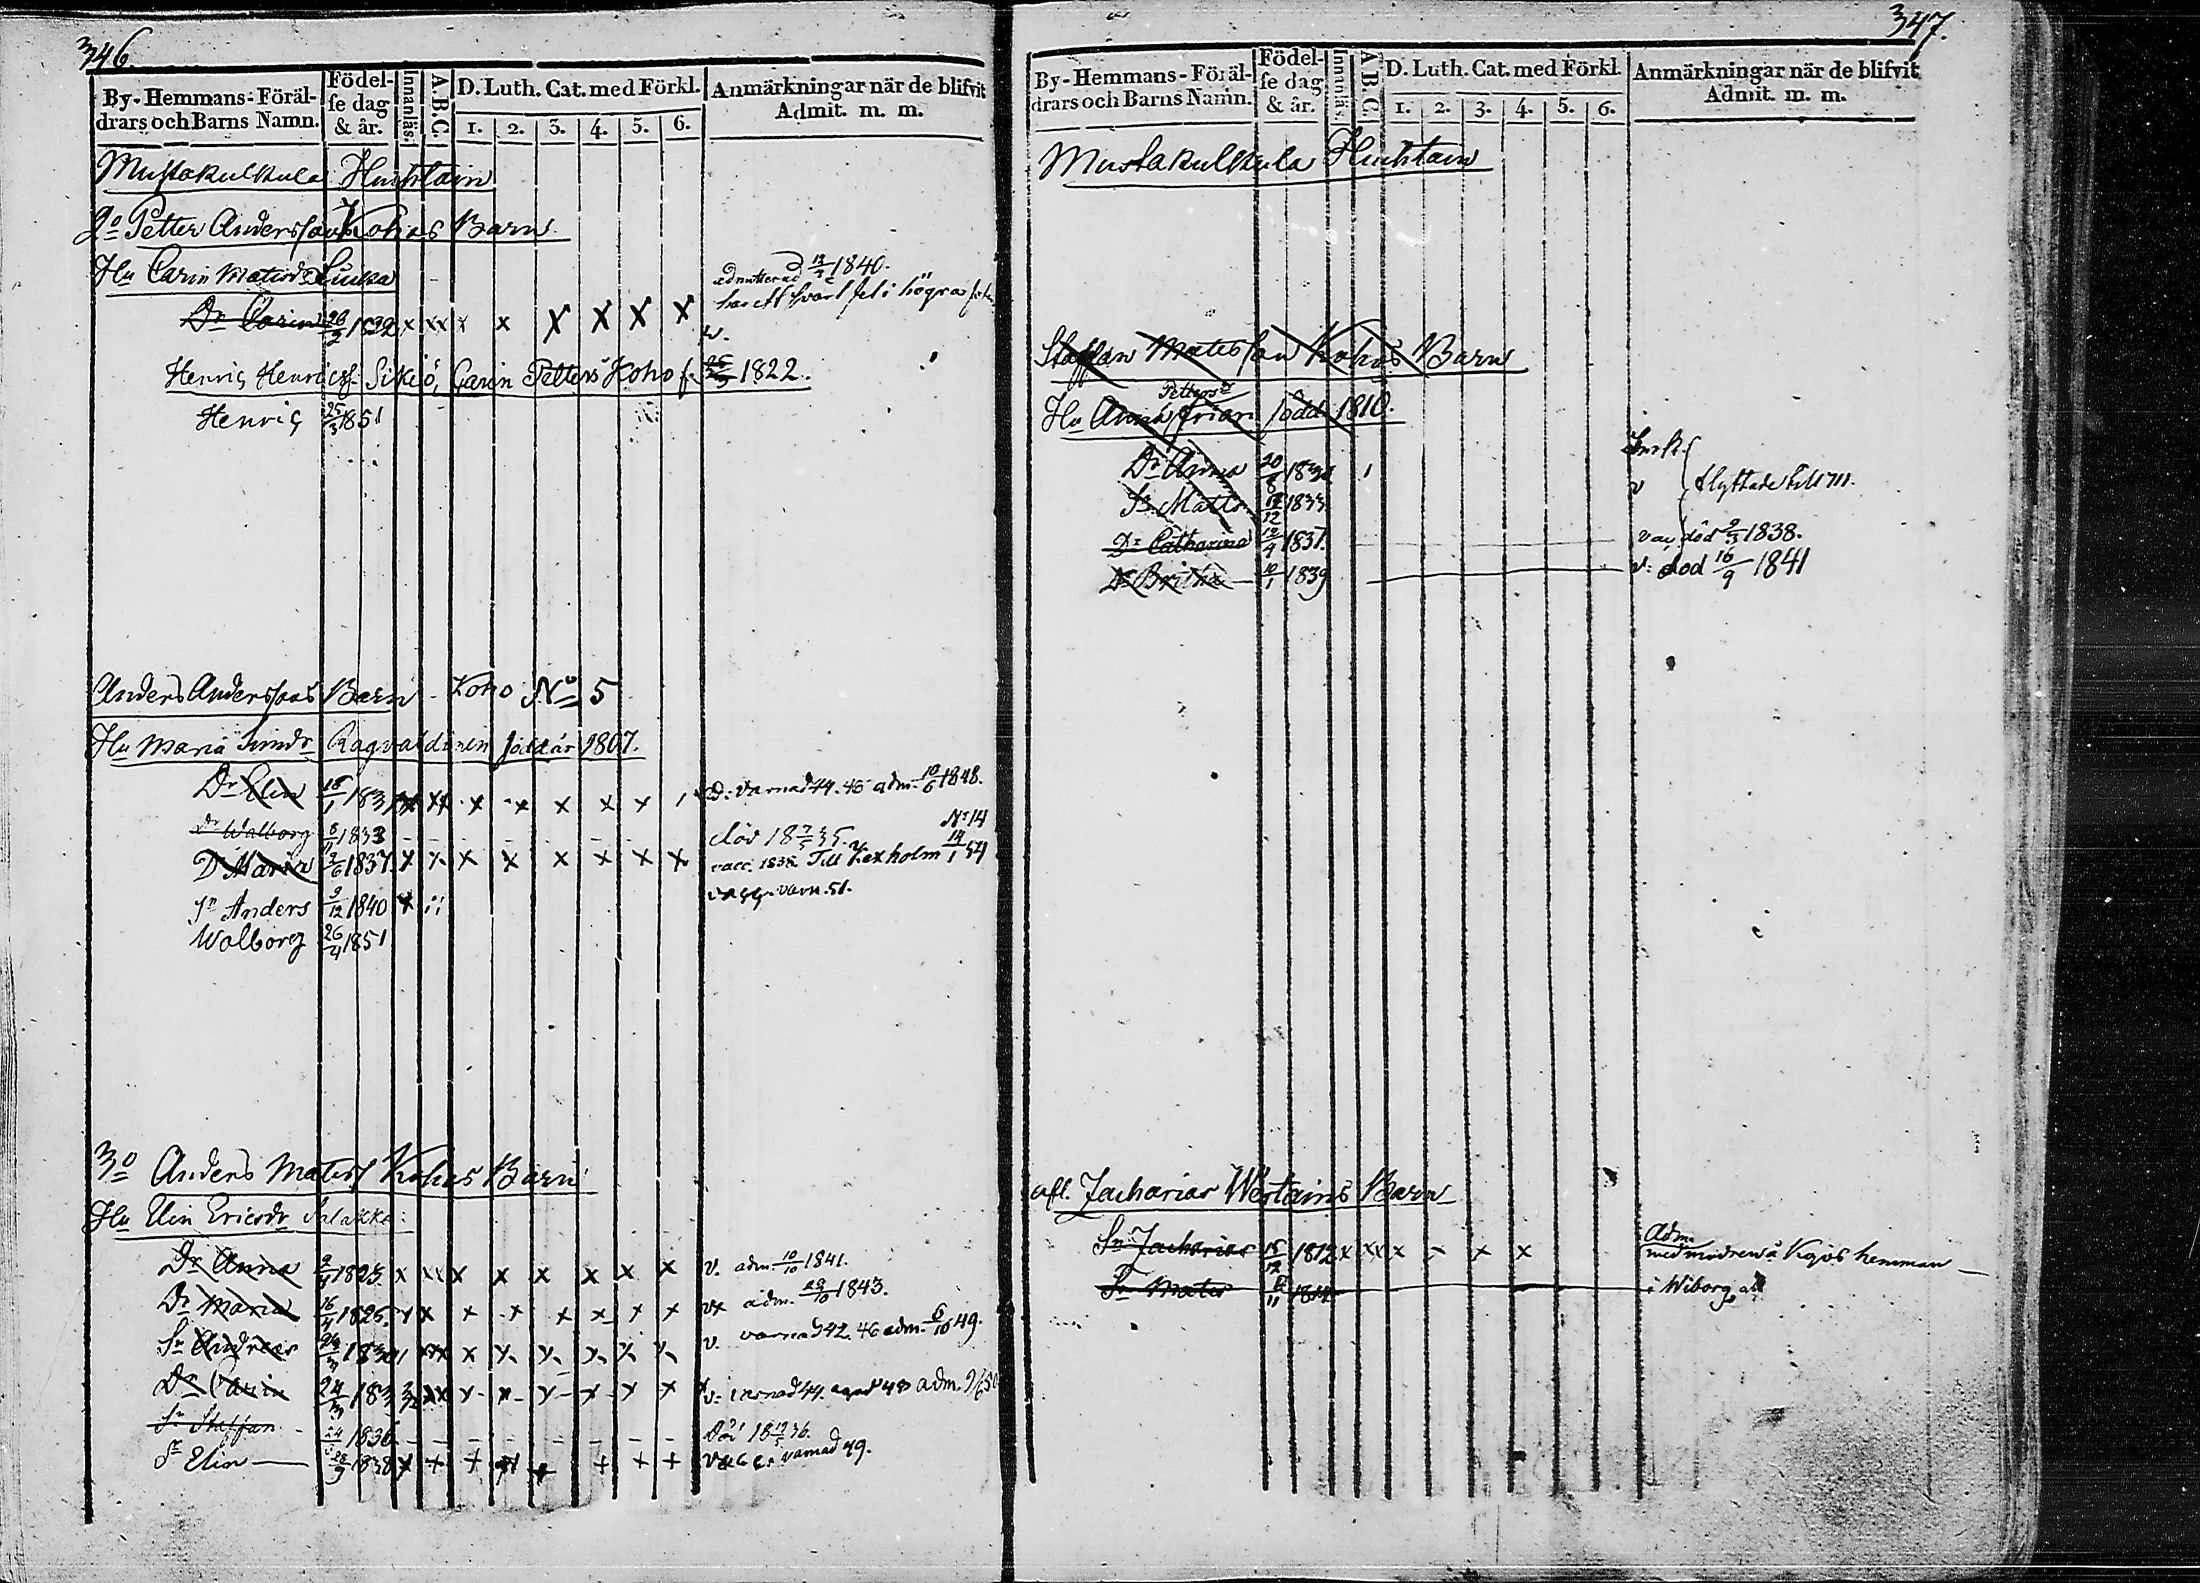 346
By-Hemmans-Föräl-
drars och Barns Namn.
Födel-
se dag
& år.
Innanläs.
A.B.C.
D. Luth. Cat. med Förkl.
1. 2. 3. 4. 5. 6.
Anmärkningar när de blifvit
Admit. m. m.
Mustakulkula Huuhtain
2o Petter Anderssons Kohos Barn
Hu Carin Matsdr Liukka
admitterad 1840.
har ett svårt fel i högra
Dr Carin 1822 x xx x x x x x x
v.
Henric Henricss. Sikiö, Carin Petters Koho f. 1822.
Henric 25/3 1851
Anders Anderssons Barn Koho No 5
Hu Maria Simdr Ragvaldinen född år 1807.
Dr Elin 18/1 1831 x x x x x x v: varnad 44. 45 adm. 10/6 1848.
Dr Walborg 1833 - - död 18 7/5 35.
No 14
Dr Maria 2/6 1837 x x x x x x x x vacc. 1838. Till Kexholm 14/1 54
Sn Anders 9/12 1840 x vacc. varn. 51.
Walborg 26/4 1851
3o Anders Matss Kohos Barn
Hu Elin Ericsdr Salakka
Dr Anna 9/4 1823. x xx x x x x x x v. adm. 10/10 1841.
Dr Maria 16/4 1826. x x x x x x x x vx adm. 29/10 1843.
Sn Andreas 1830 xx x x x x x x v. varnad 42. 46 adm. 6/10 49.
Dr Carin 24/3 1833 xx x x x x x x v: varnad 44. adm.
Sn Staffan 1836. - - - - - - Död
Dr Elin 1838 x x x x x x x x vacc. varnad 49.
347.
By-Hemmans-Föräl-
drars och Barns Namn.
Födel-
se dag
& år.
Innanläs.
A.B.C.
D. Luth. Cat. med Förkl.
1. 2. 3. 4. 5. 6.
Anmärkningar när de blifvit
Admit. m. m.
Mustakulkula Huuhtain
Staffan Matsson Kohos Barn
Hu Anna Pettersdr född 1810.
Dr Anna 20/8 183
Sn Matts 1833 v flyttade till 711.
Dr Catharina 1837. vac. död 9/3 1838.
Dr Britha 10/1 1839 v: död 16/9 1841
afl. Zacharias Westains Barn
Sn Zacharias 15/12 1812 x xx x x x x Adm.
med modren å Kyös hemman
Sn Mats 1814 i Wiborg